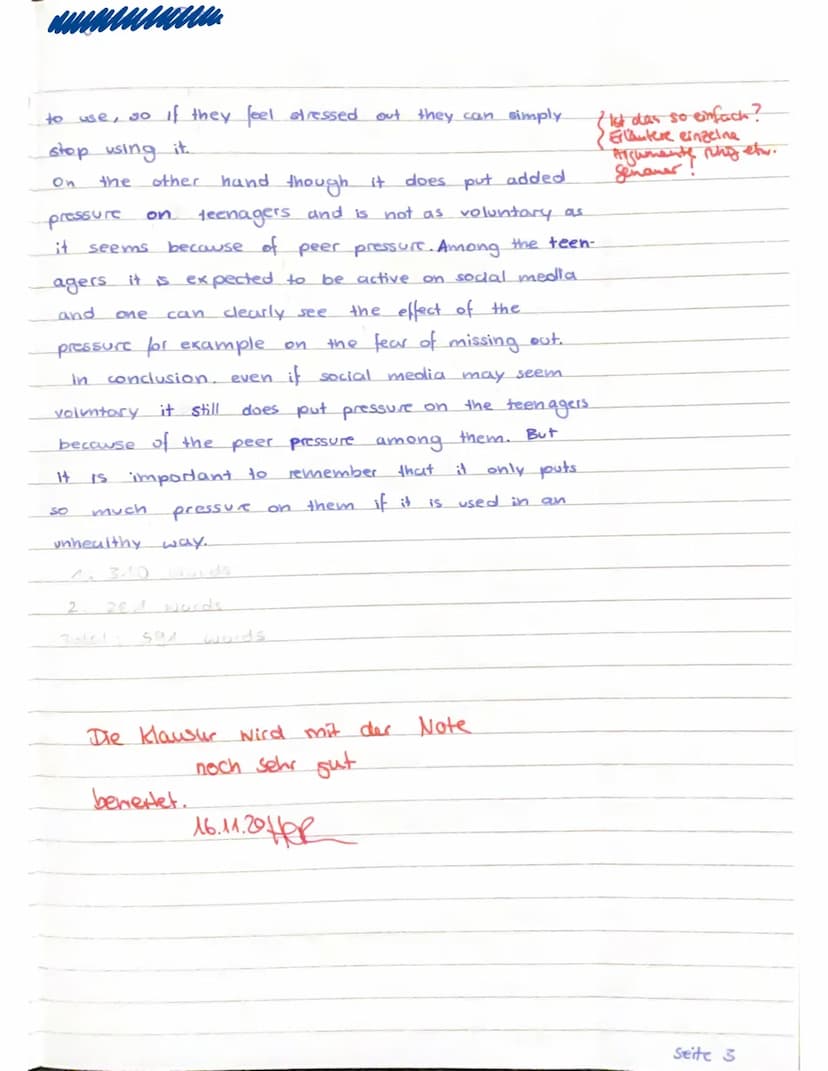 to use, so if they feel stressed out they can simply
stop using it.
On the other hand though it does put added
pressure on teenagers and is not as voluntary as
it seems because of peer pressure. Among the teen-
agers it is expected to be active on social media
and one can clearly see the effect of the
pressure for example on the fear of missing out.
In conclusion. even if social media may seem
voluntary it still does put pressure on the teenagers
because of the peer pressure among them. But
it is important to remember that it only puts
so much pressure on them if it is used in an
unhealthy way.
1. 310 words
2. 281 words
Total: 591 words
Ist das so einfach?
Erläutere einzelne
Argumente ruhig etw.
genauer!
Die Klausur wird mit der Note
noch sehr gut
bewertet.
16.11.20
Seite 3